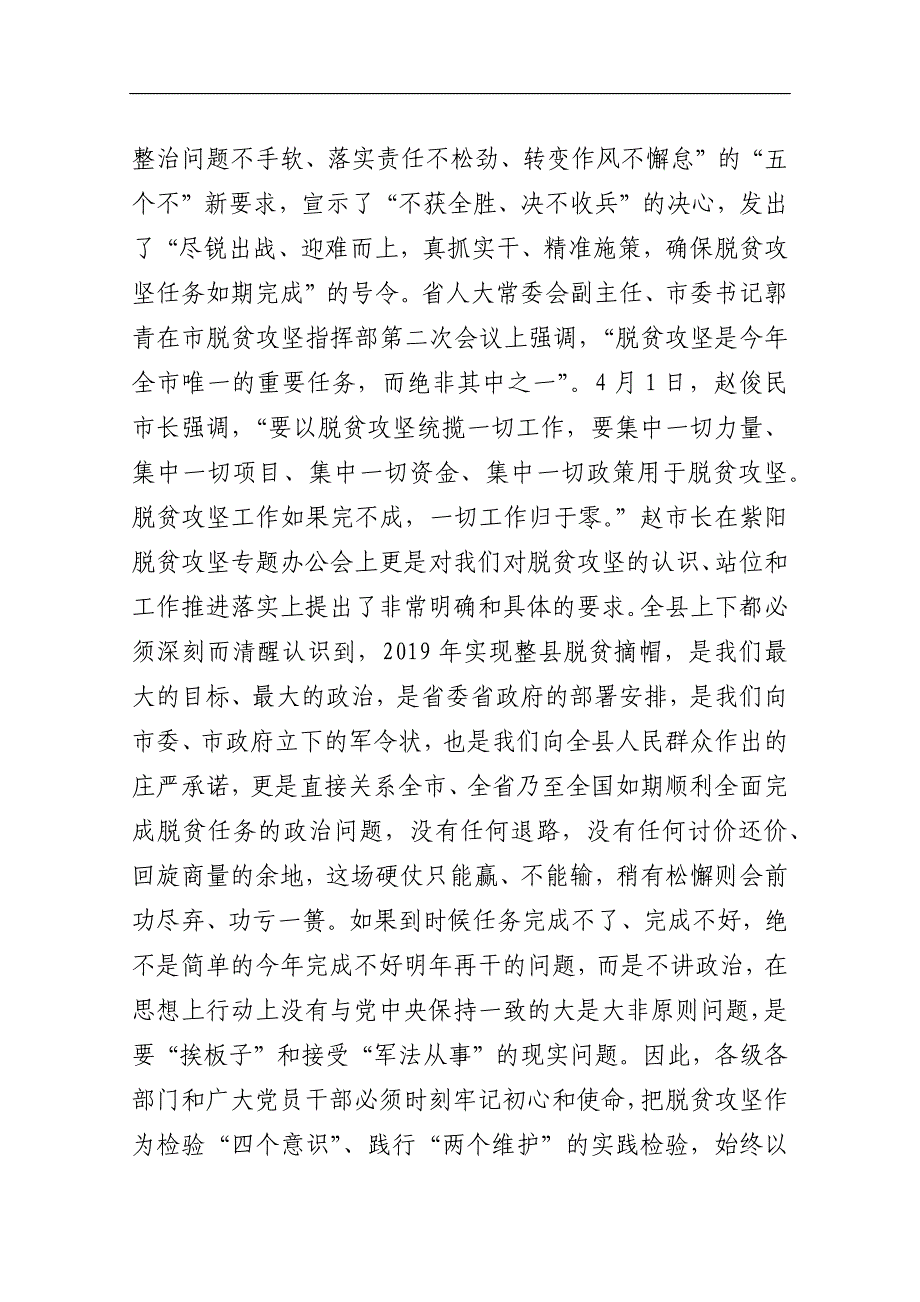 整治问题不手软、落实责任不松劲、转变作风不懈怠”的“五
个不”新要求，宣示了“不获全胜、决不收兵”的决心，发出
了“尽锐出战、迎难而上，真抓实干、精准施策，确保脱贫攻
坚任务如期完成”的号令。省人大常委会副主任、市委书记郭
青在市脱贫攻坚指挥部第二次会议上强调，“脱贫攻坚是今年
全市唯一的重要任务，而绝非其中之一”。4 月 1 日，赵俊民
市长强调，“要以脱贫攻坚统揽一切工作，要集中一切力量、
集中一切项目、集中一切资金、集中一切政策用于脱贫攻坚。
脱贫攻坚工作如果完不成，一切工作归于零。”赵市长在紫阳
脱贫攻坚专题办公会上更是对我们对脱贫攻坚的认识、站位和
工作推进落实上提出了非常明确和具体的要求。全县上下都必
须深刻而清醒认识到，2019 年实现整县脱贫摘帽，是我们最
大的目标、最大的政治，是省委省政府的部署安排，是我们向
市委、市政府立下的军令状，也是我们向全县人民群众作出的
庄严承诺，更是直接关系全市、全省乃至全国如期顺利全面完
成脱贫任务的政治问题，没有任何退路，没有任何讨价还价、
回旋商量的余地，这场硬仗只能赢、不能输，稍有松懈则会前
功尽弃、功亏一篑。如果到时候任务完成不了、完成不好，绝
不是简单的今年完成不好明年再干的问题，而是不讲政治，在
思想上行动上没有与党中央保持一致的大是大非原则问题，是
要“挨板子”和接受“军法从事”的现实问题。因此，各级各
部门和广大党员干部必须时刻牢记初心和使命，把脱贫攻坚作
为检验“四个意识”、践行“两个维护”的实践检验，始终以